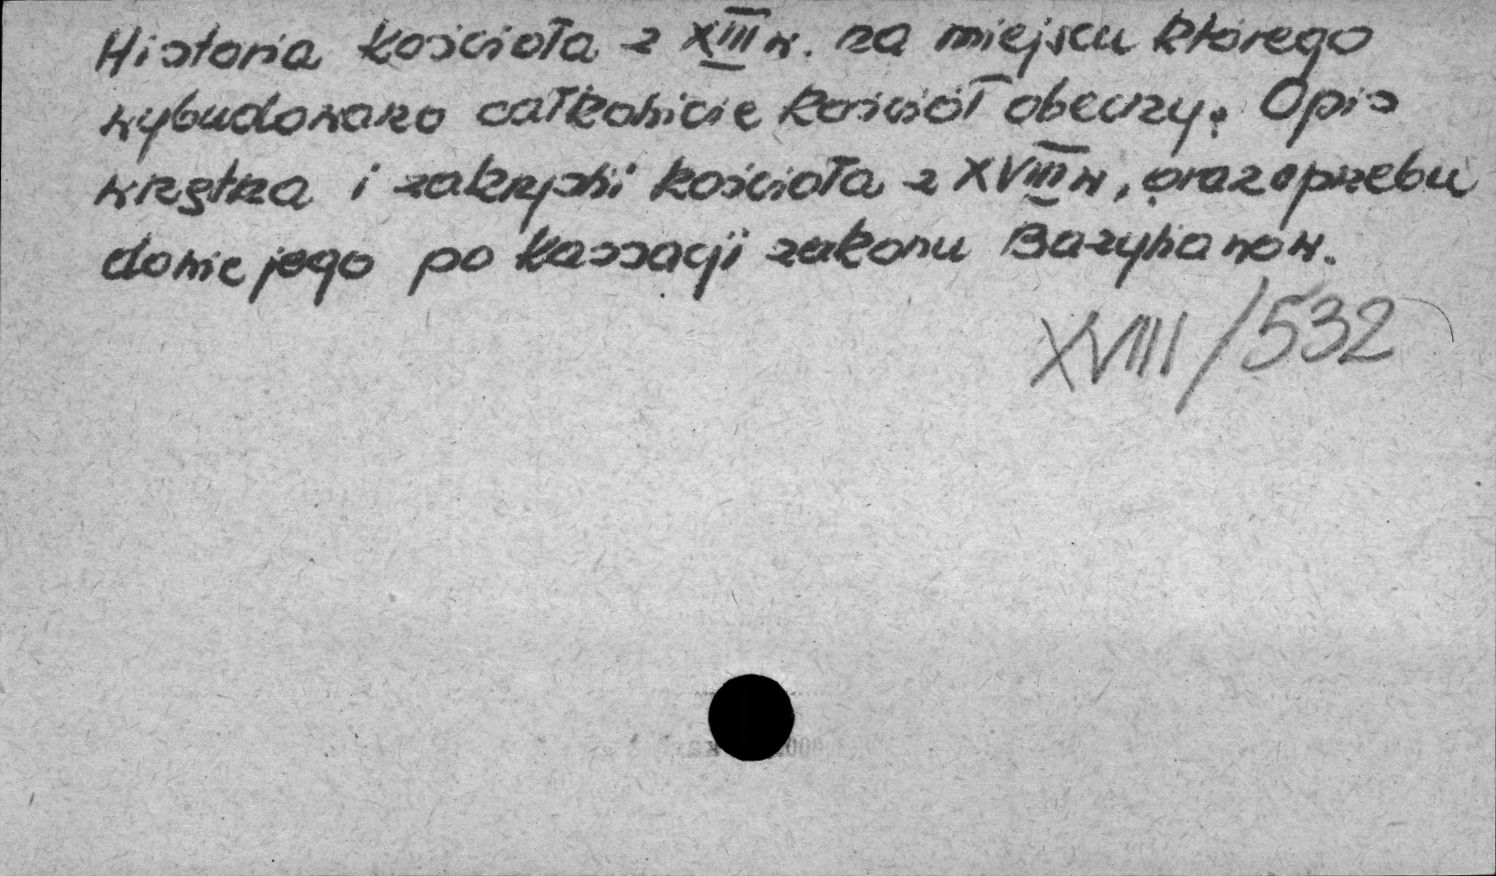 Historia kościoła z XIII w. na miejscu którego
wybudowano całkowicie kościół obecny. Opis
wnętrza i zakrystii kościoła z XVIII w, oraz o przebu
dowie jego po kassacji zakonu Bazylianów.
XVIII/532